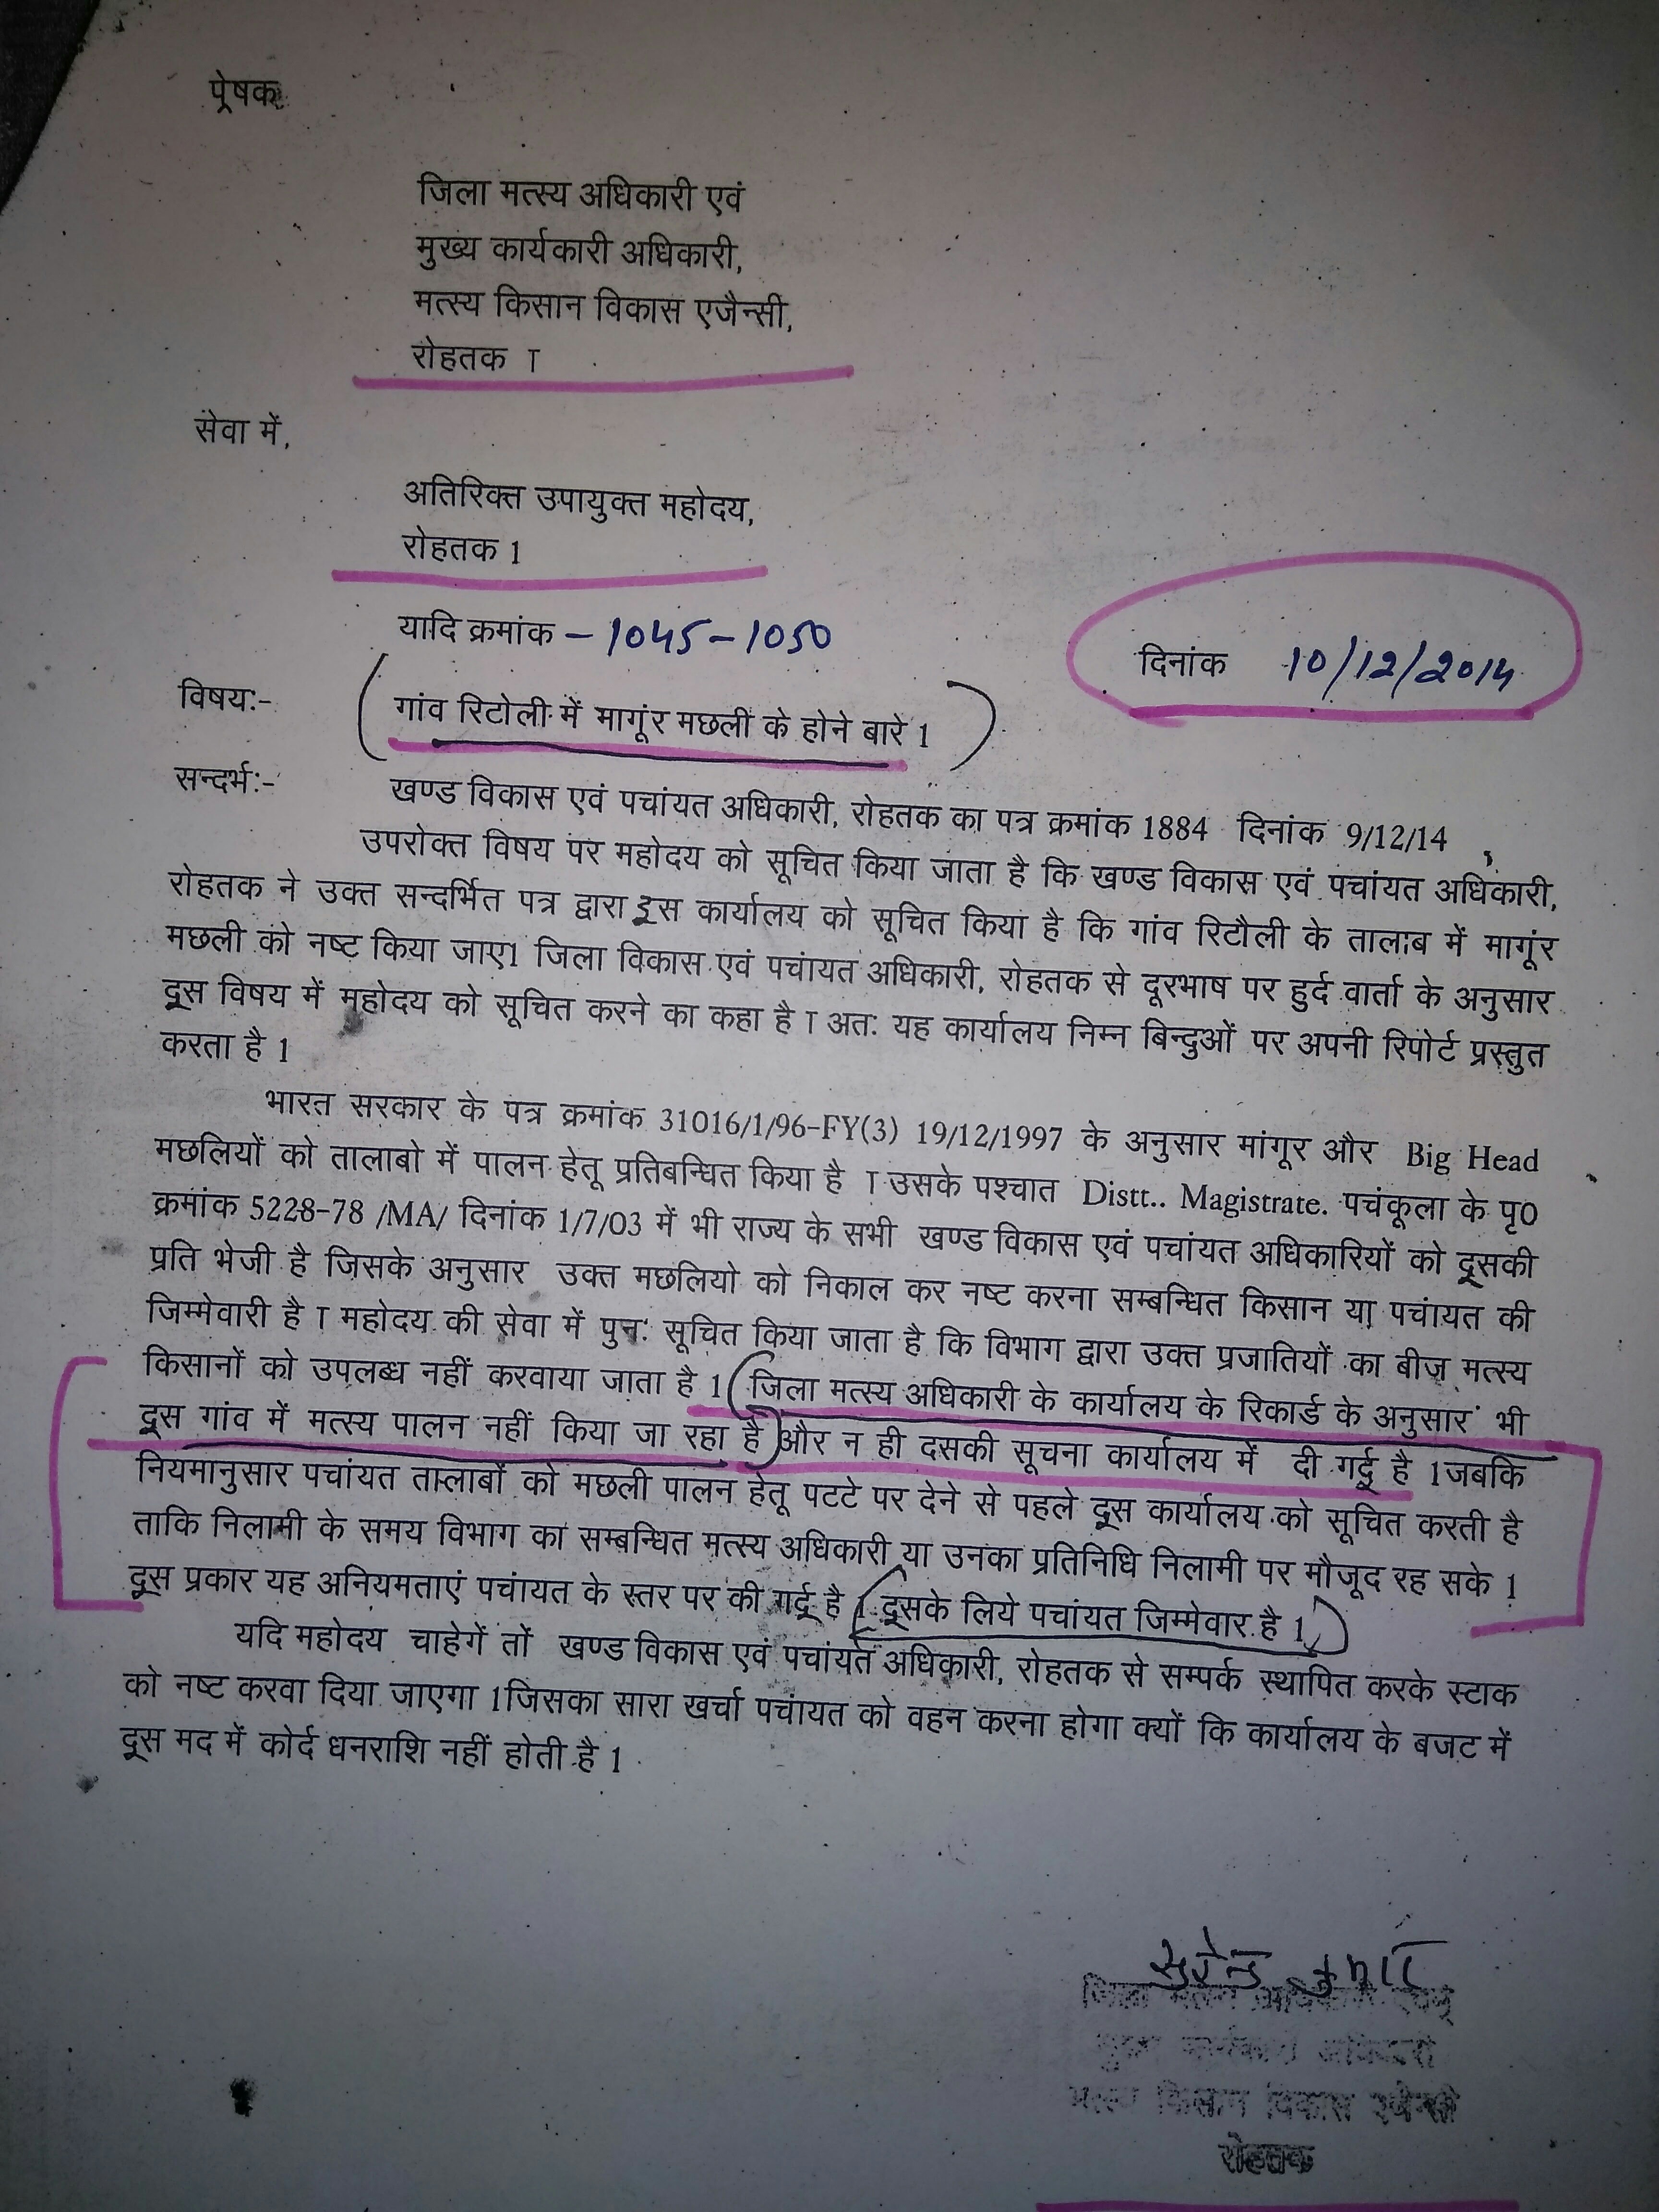 प्रेषक
जिला मत्स्य अधिकारी एवं
मुख्य कार्यकारी अधिकारी,
मत्स्य किसान विकास एजैन्सी,
रोहतक ।
सेवा में,
अतिरिक्त उपायुक्त महोदय,
रोहतक 1
यादि क्रमांक – 1045-1050
दिनांक 10/12/2014
विषय:- गांव रिटोली में मागूंर मछली के होने बारे 1
सन्दर्भ:- खण्ड विकास एवं पचांयत अधिकारी, रोहतक का पत्र क्रमांक 1884 दिनांक 9/12/14
उपरोक्त विषय पर महोदय को सूचित किया जाता है कि खण्ड विकास एवं पचांयत अधिकारी,
रोहतक ने उक्त सन्दर्भित पत्र द्वारा इस कार्यालय को सूचित किया है कि गांव रिटौली के तालाब में मागूंर
मछली को नष्ट किया जाए1 जिला विकास एवं पचांयत अधिकारी, रोहतक से दूरभाष पर हुर्द वार्ता के अनुसार
दूस विषय में महोदय को सूचित करने का कहा है । अत: यह कार्यालय निम्न बिन्दुओं पर अपनी रिपोर्ट प्रस्तुत
करता है 1
भारत सरकार के पत्र क्रमांक 31016/1/96-FY(3) 19/12/1997 के अनुसार मांगूर और Big Head
मछलियों को तालाबो में पालन हेतू प्रतिबन्धित किया है । उसके पश्चात Distt.. Magistrate. पचंकूला के पृ0
क्रमांक 5228-78 /MA/ दिनांक 1/7/03 में भी राज्य के सभी खण्ड विकास एवं पचांयत अधिकारियों को दूसकी
प्रति भेजी है जिसके अनुसार उक्त मछलियो को निकाल कर नष्ट करना सम्बन्धित किसान या पचांयत की
जिम्मेवारी है । महोदय की सेवा में पुन: सूचित किया जाता है कि विभाग द्वारा उक्त प्रजातियों का बीज मत्स्य
किसानों को उपलब्ध नहीं करवाया जाता है 1 जिला मत्स्य अधिकारी के कार्यालय के रिकार्ड के अनुसार भी
दूस गांव में मत्स्य पालन नहीं किया जा रहा है और न ही दसकी सूचना कार्यालय में दी गर्दू है 1जबकि
नियमानुसार पचांयत तालाबों को मछली पालन हेतू पटटे पर देने से पहले दूस कार्यालय को सूचित करती है
ताकि निलामी के समय विभाग का सम्बन्धित मत्स्य अधिकारी या उनका प्रतिनिधि निलामी पर मौजूद रह सके 1
दूस प्रकार यह अनियमताएं पचांयत के स्तर पर की गर्दू है 1 दूसके लिये पचांयत जिम्मेवार है 1
यदि महोदय चाहेगें तों खण्ड विकास एवं पचांयत अधिकारी, रोहतक से सम्पर्क स्थापित करके स्टाक
को नष्ट करवा दिया जाएगा 1जिसका सारा खर्चा पचांयत को वहन करना होगा क्यों कि कार्यालय के बजट में
दूस मद में कोर्द धनराशि नहीं होती है 1
सुरेन्द्र कुमार
जिला मत्स्य अधिकारी एवम्
मुख्य कार्यकारी अधिकारी
मत्स्य किसान विकास एजेन्सी
रोहतक